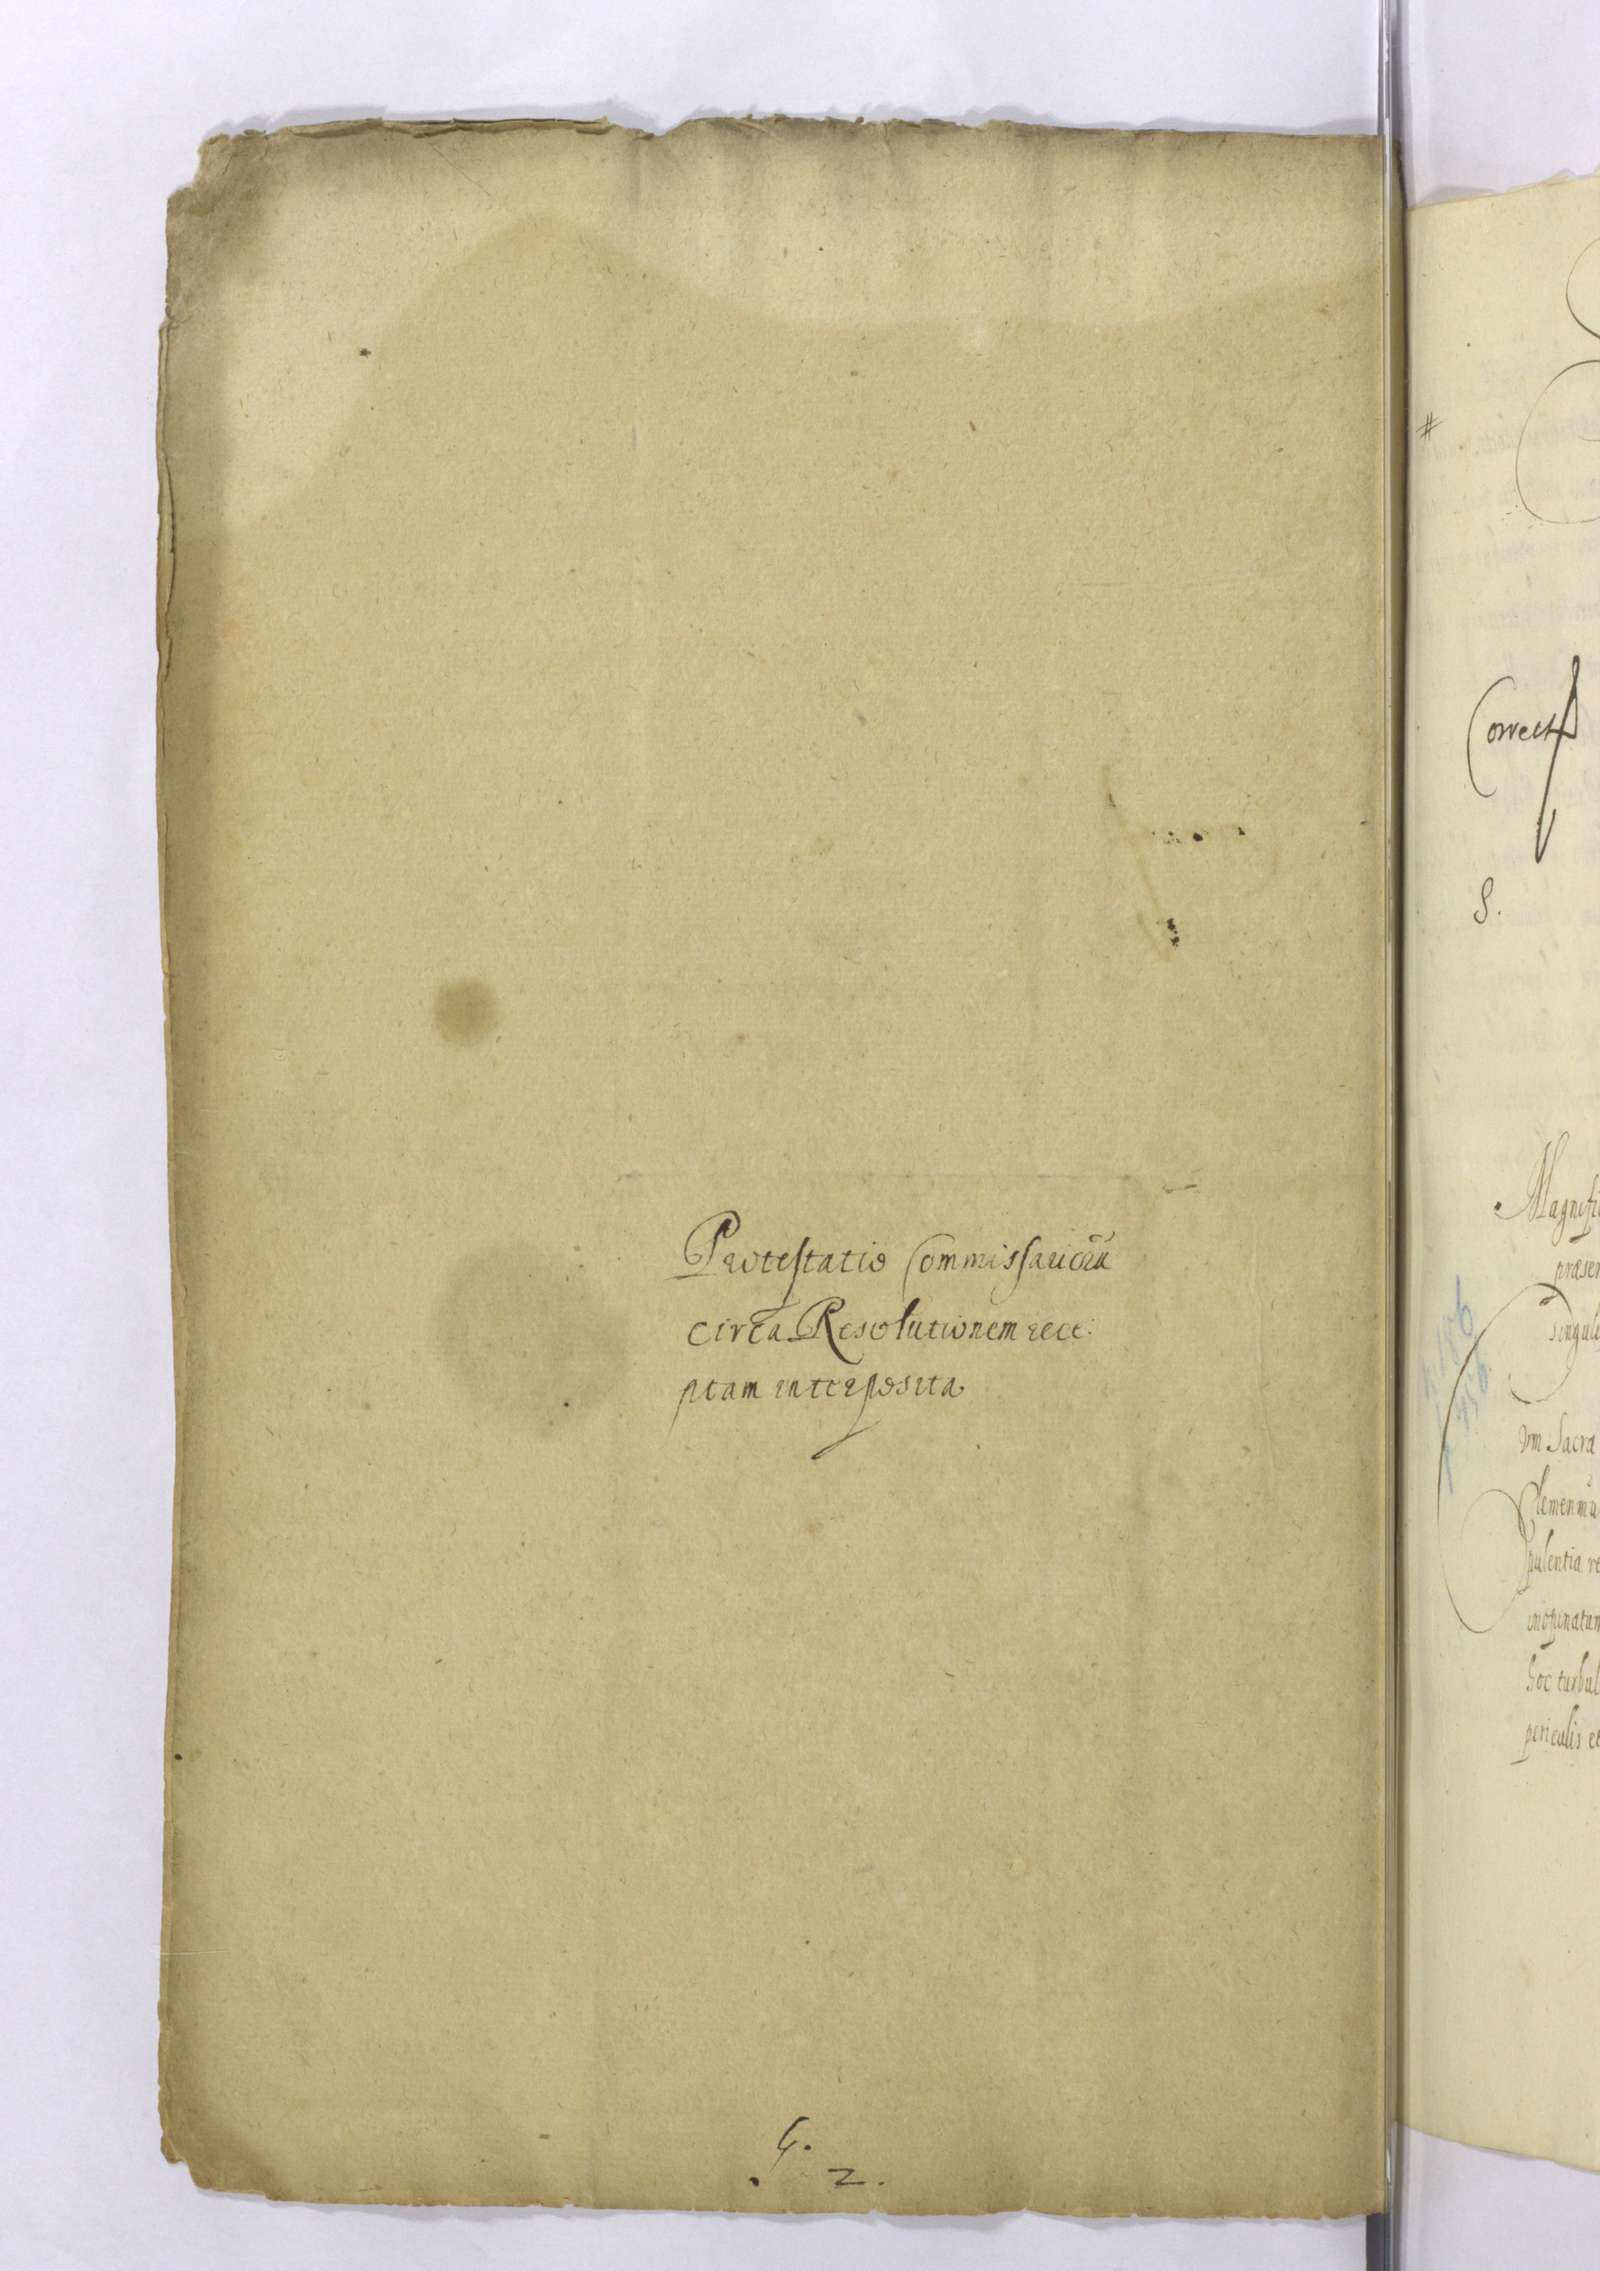 Protestatio Commissarioru̅
circa Resolutionem rece:
ptam interposita
G.
. 2.
#
Correct
S.
Magnifi
præsen
singul
Um Sacra
Clemen
pulentia re
inopinatam
hoc turbul
periculis et